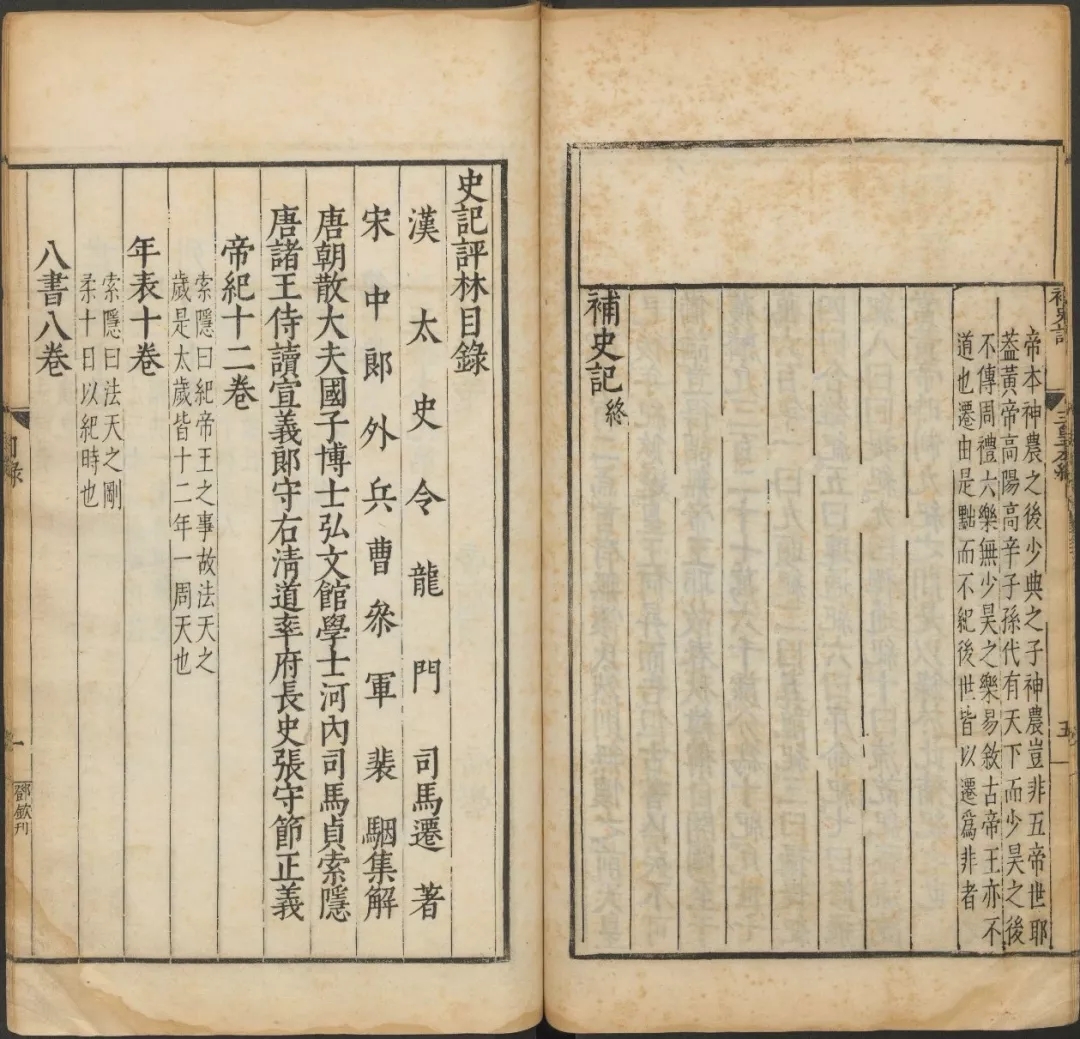 補史記
三皇本紀
五
帝本神農之後少典之子神農豈非五帝世耶
葢黃帝高陽高辛子孫代有天下而少昊之後
不傳周禮六樂無少昊之樂易敘古帝王亦不
道也遷由是黜而不紀後世皆以遷爲非者
補史記終
史記評林目錄
漢太史令龍門司馬遷著
宋中郎外兵曹叅軍裴駰集解
唐朝散大夫國子博士弘文館學士河內司馬貞索隱
唐諸王侍讀宣義郎守右清道率府長史張守節正義
帝紀十二卷
索隱曰紀帝王之事故法天之
歲是太歲皆十二年一周天也
年表十卷
索隱曰法天之剛
柔十日以紀時也
八書八卷
目錄
一
鄧欽刊